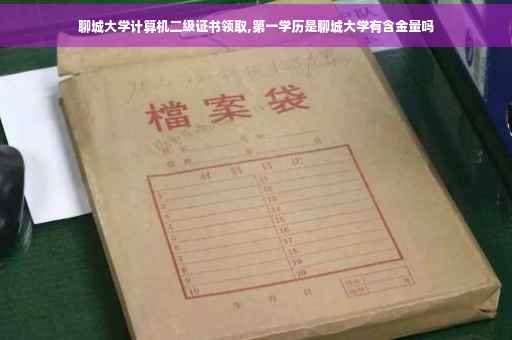 聊城大学计算机二级证书领取,第一学历是聊城大学有含金量吗
檔案袋
材料目次
1 11
2 12
3 13
4 14
5 15
6 16
7 17
8 18
9 19
10 20
年 月 日